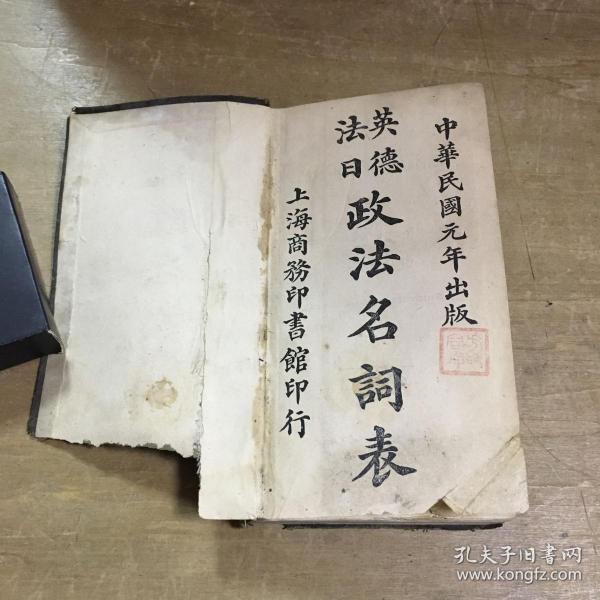 中華民國元年出版
英德法日政法名詞表
上海商務印書館印行
孔夫子旧书网
www.kongfz.com